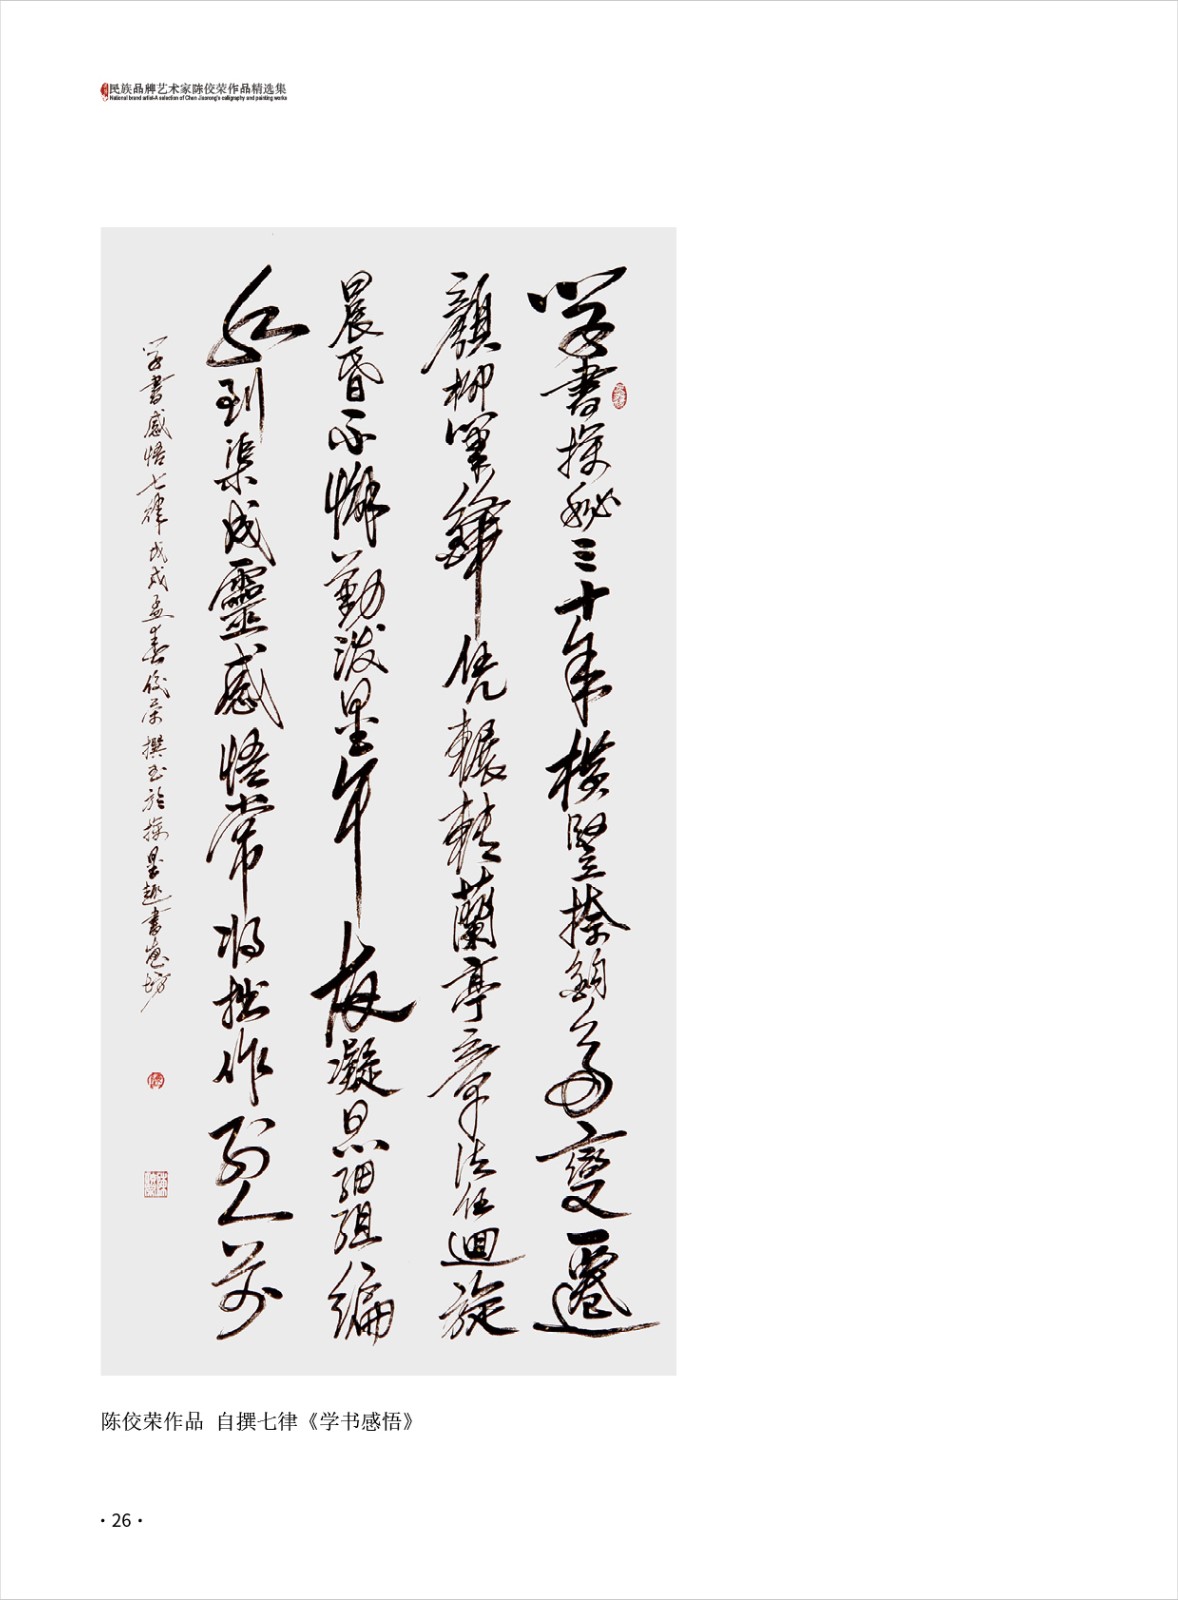 民族品牌艺术家陈佼荣作品精选集
National brand artist-A selection of Chen Jiaorong's calligraphy and painting works
学書探秘三十年横豎捺鈎多變遷
顏柳筆鋒凭輾轉蘭亭章法任迴旋
晨昏不懈勤潑墨午夜凝思細組編
水到渠成靈感悟常将拙作至人前
学書感悟七律戊戌孟春佼荣撰书於掬墨趣書畫坊
陈佼荣作品 自撰七律《学书感悟》
·26·